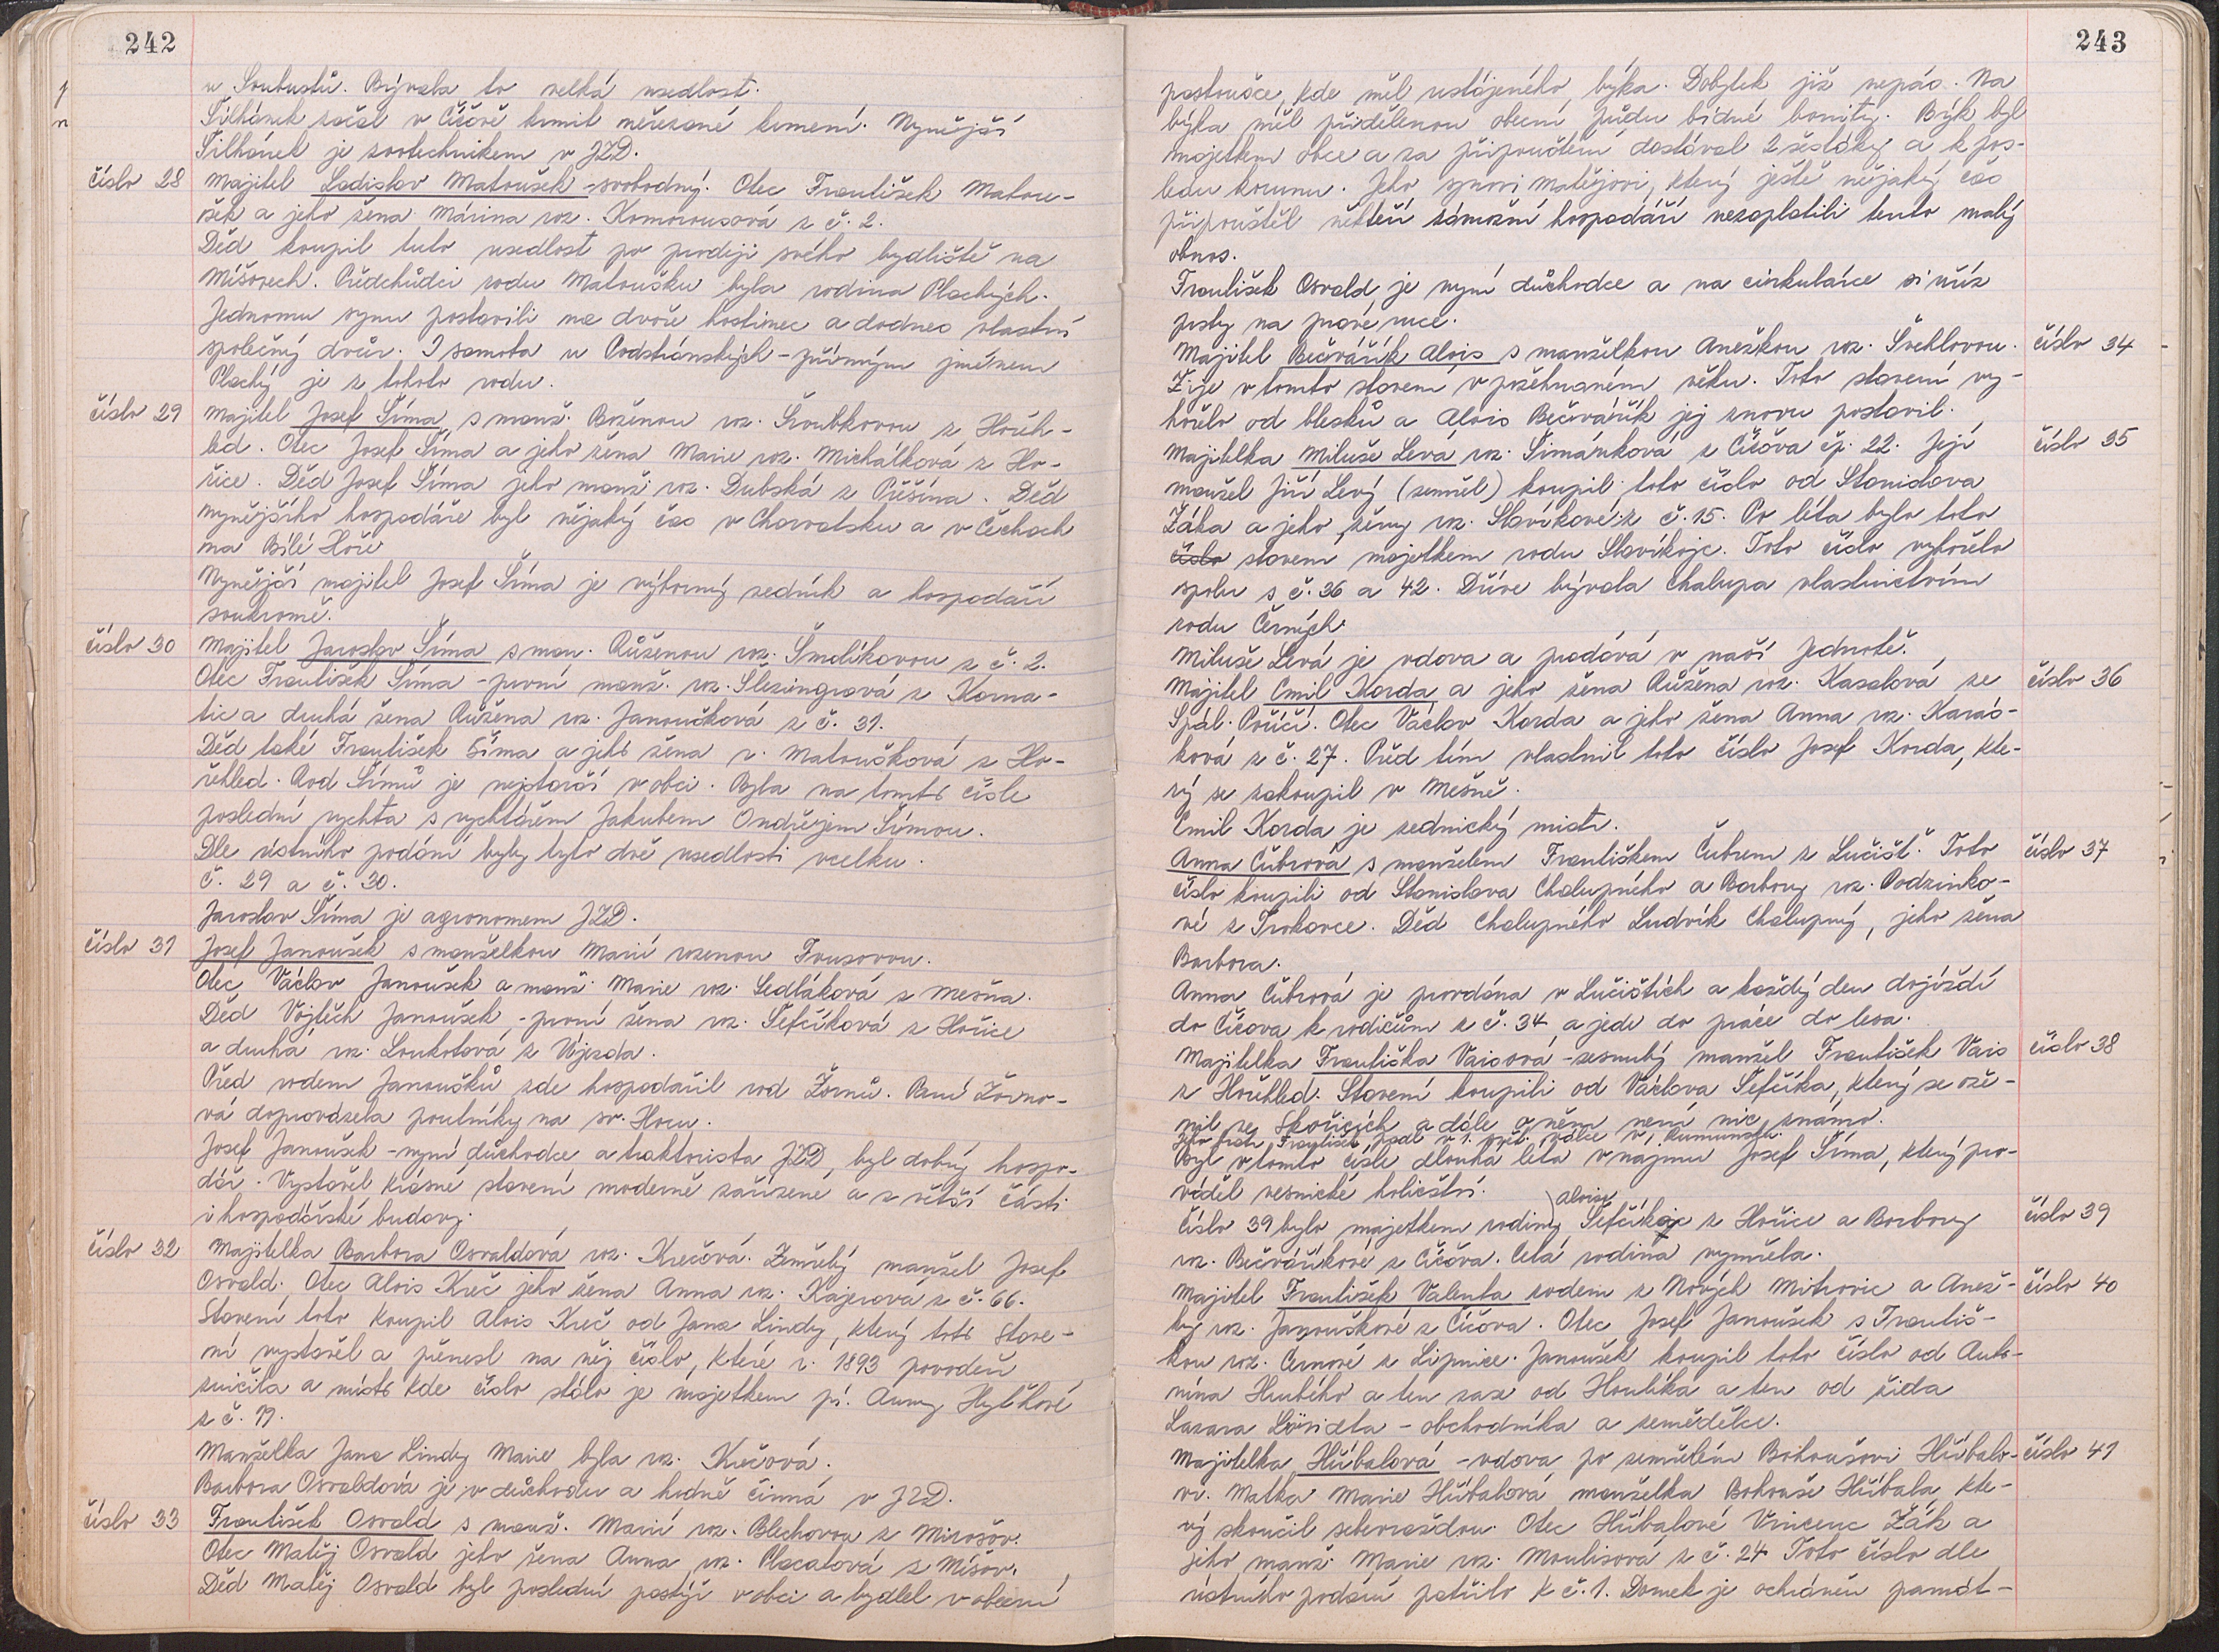 242
u Soukustů. Bývala to velká usedlost.
Šilhánek začal v Číčově krmit neřezané krmení. Nynější
Šilhánek je zootechnikem v JZD.
číslo 28 Majitel Ladislav Matoušek - svobodný. Otec František Matou-
šek a jeho žena Márina roz. Komorousová z č. 2.
Děd koupil tuto usedlost po prodeji svého bydliště na
Míšovech. Předchůdci rodu Matoušku byla rodina Plachých.
Jednomu synu postavili na dvoře hostinec a dodnes vlastní
společný dvůr. I samota u Podstránských - příjmým jménem
Plachý je z tohoto rodu.
číslo 29 Majitel Josef Šíma s manž. Boženou roz. Šroubkovou z Hořeh-
led. Otec Josef Šíma a jeho žena Marie roz. Michálková z Ho-
řice. Děd Josef Šíma jeho manž. roz. Dubská z Příšína. Děd
nynějšího hospodáře byl nějaký čas v Chorvatsku a v Čechách
na Bílé Hoře
Nynější majitel Josef Šíma je výborný zedník a hospodaří
soukromě.
číslo 30 Majitel Jaroslav Šíma s man. Růženou roz. Šmolíkovou z č. 2.
Otec František Šíma - první manž. roz. Slezingrová z Korna-
tic a druhá žena Růžena roz. Janoušková z č. 31.
Děd také František Šíma a jeho žena r. Matoušková z Ho-
řehled. Rod Šímů je nejstarší v obci. Byla na tomto čísle
poslední rychta s rychtářem Jakubem Ondřejem Šímou.
Dle ústního podání byly tyto dvě usedlosti vcelku.
Č. 29 a č. 30.
Jaroslav Šíma je agronomem JZD.
číslo 31 Josef Janoušek s manželkou Marií rozenou Fousovou.
Otec Václav Janoušek a manž. Marie roz. Sedláková z Mešna.
Děd Vojtěch Janoušek, - první žena roz. Šefčíková z Hořice
a druhá roz. Loukotová z Vojezda.
Před rodem Janoušků zde hospodařil rod Žornů. Paní Žorno-
vá doprovázela poutníky na sv. Horu.
Josef Janoušek - nyní důchodce a traktorista JZD, byl dobrý hospo-
dář. Vystavěl krásné stavení moderně zařízené a z větší části
i hospodářské budovy.
číslo 32 Majitelka Barbora Osvaldová roz. Krečová. Zemřelý manžel Josef
Osvald. Otec Alois Kreč jeho žena Anna roz. Kajerová z č. 66.
Stavení toto koupil Alois Kreč od Jana Lindy, který toto stave-
ní vystavěl a přenesl na něj číslo, které r. 1893 povodeň
zničila a místo kde číslo stálo je majetkem pí. Anny Hyťhové
z č. 19.
Manželka Jana Lindy Marie byla roz. Krečová.
Barbora Osvaldová je v důchodu a hodně činná v JZD.
číslo 33 František Osvald s manž. Marií roz. Blechovou z Mirošov.
Otec Matěj Osvald jeho žena Anna roz. Placatová z Míšov.
Děd Matěj Osvald byl poslední pastýř v obci a bydlel v obecní
243
pastoušce, kde měl ustájeného býka. Dobytek již nepás. Na
býka měl přidělenou obecní půdu bídné bonity. Býk byl
majetkem obce a za připouštění dostával 2 šestáky a k pos-
ledu korunu. Jeho synovi Matějovi, který ještě nějaký čas
připouštěl někteří zámožní hospodáři nezaplatili tento malý
obnos.
František Osvald je nyní důchodce a na cirkulárce si uříz
prsty na pravé ruce.
Majitel Bečvářík Alois s manželkou Anežkou roz. Švehlovou. číslo 34
Žije v tomto stavení v požehnaném věku. Toto stavení vy-
hořelo od blesků a Alois Bečvářík jej znovu postavil.
Majitelka Miluše Levá roz. Šimánková z Číčova čp. 22. Její číslo 35
manžel Jiří Levý (zemřel) koupil toto číslo od Stanislava
Žáka a jeho ženy roz. Slavíkové z č. 15. Po léta bylo toto
číslo stavení majetkem rodu Slavíkojc. Toto číslo vyhořelo
spolu s č. 36 a 42. Dříve bývala chalupa vlastnictvím
rodu Černých.
Miluše Levá je vdova a prodává v naší Jednotě.
Majitel Emil Korda a jeho žena Růžena roz. Kasalová ze číslo 36
Spál. Poříčí. Otec Václav Korda a jeho žena Anna roz. Karás-
ková z č. 27. Před tím vlastnil toto číslo Josef Korda, kte-
rý se zakoupil v Mešně.
Emil Korda je zednický mistr.
Anna Čubrová s manželem Františkem Čubrem z Lučišť. Toto číslo 37
číslo koupili od Stanislava Chalupného a Barbory roz. Podzimko-
vé z Trokavce. Děd Chalupného Ludvík Chalupný, jeho žena
Barbora.
Anna Čubrová je provdána v Lučištích a každý den dojíždí
do Číčova k rodičům z č. 34 a jede do práce do lesa.
Majitelka Františka Vaisová - zesnulý manžel František Vais číslo 38
z Hořehled. Stavení koupili od Václava Šefčíka, který se ože-
nil ve Skořicích a dále o něm není nic známo.
Jeho bratr František padl v 1. svět. válce v Rumunsku.
Byl v tomto čísle dlouhá léta v nájmu Josef Šíma, který pro-
váděl vesnické holičství.
Číslo 39 bylo majetkem rodiny Aloise Šefčíka z Hořice a Barbory číslo 39
roz. Bečváříkové z Číčova. Celá rodina vymřela.
Majitel František Valenta rodem z Nových Mitrovic a Anež- číslo 40
ky roz. Janouškové z Číčova. Otec Josef Janoušek s Františ-
kou roz. Černové z Lipnice. Janoušek koupil toto číslo od Anto-
nína Hrubého a ten zase od Houlíka a ten od žida
Lazara - obchodníka a zemědělce.
Majitelka Hříbalová - vdova po zemřelém Bohoušovi Hříbalo- číslo 41
vi. Matka Marie Hříbalová manželka Bohouše Hříbala, kte-
rý skončil sebevraždou. Otec Hříbalové Vincenc Žák a
jeho manž. Marie roz. Moulisová z č. 24 Toto číslo dle
ústního podání patřilo k č. 1. Domek je ochráněn památ-